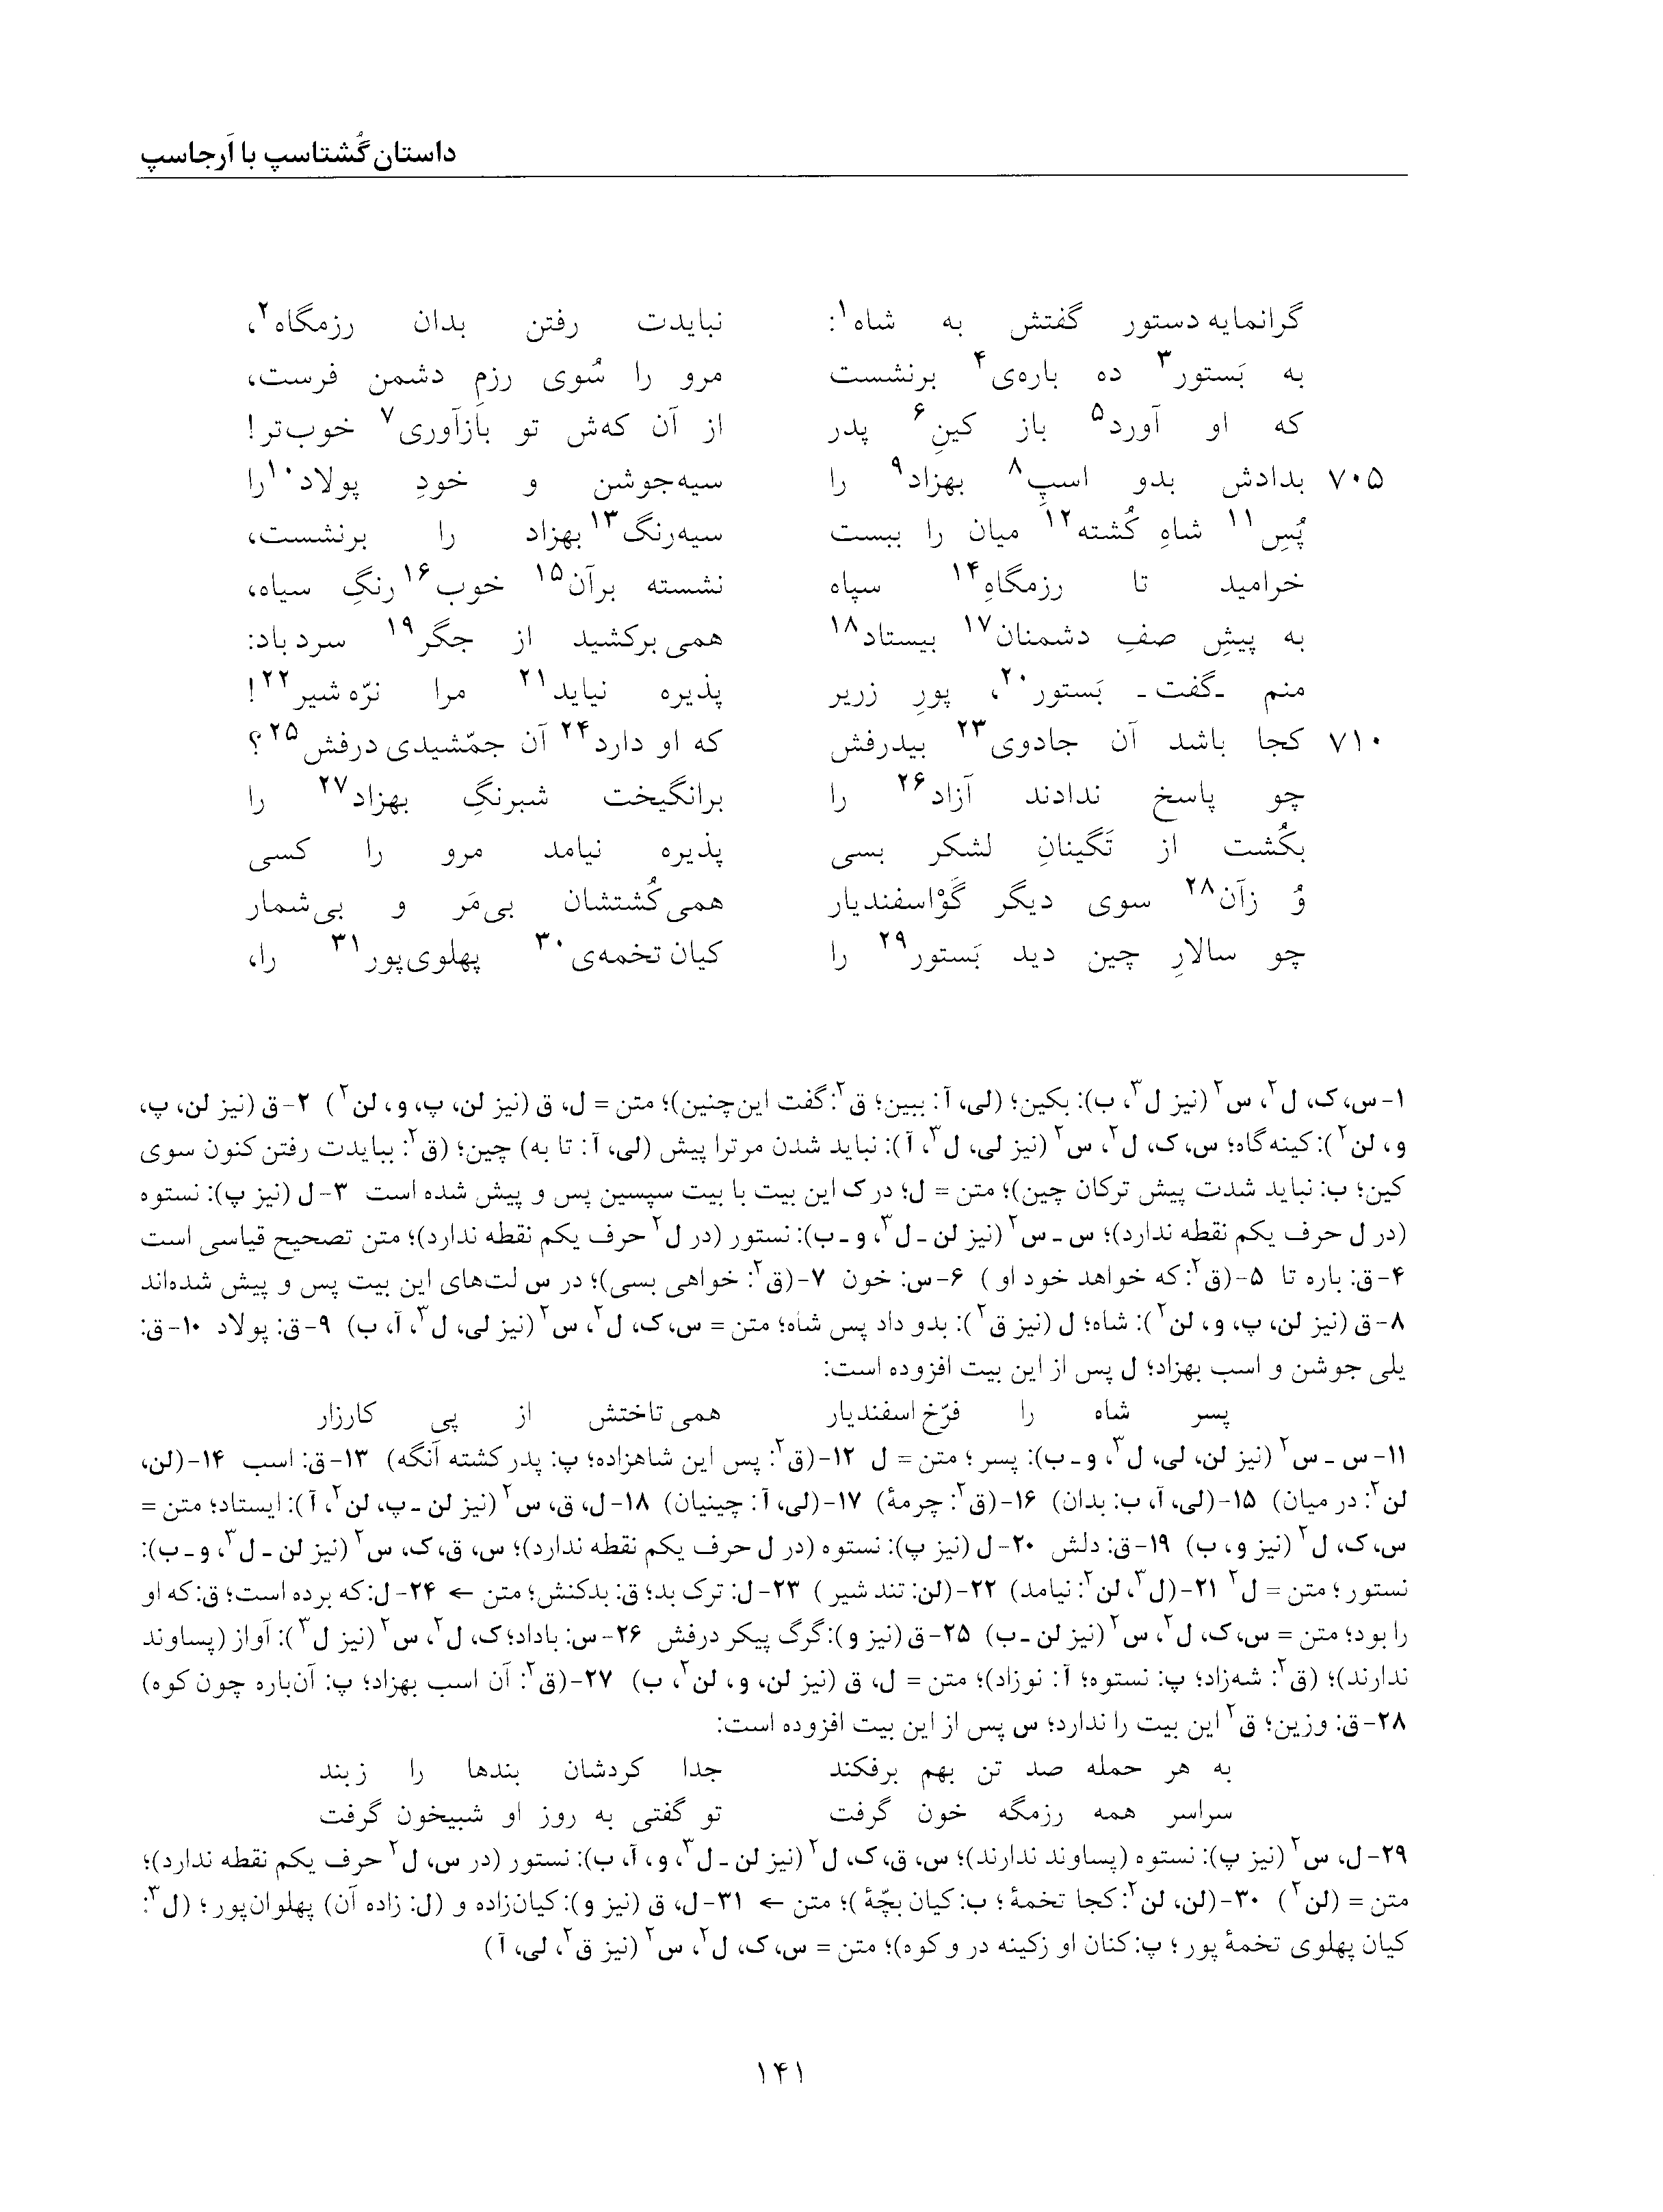 داستان گُشتاسپ با اَرجاسپ
گرانمایه دستور گفتش به شاه۱: نبایدت رفتن بدان رزمگاه۲،
به بَستور۳ ده باره‌ی۴ برنشست مرو را سُوی رزمِ دشمن فرست،
که او آورد۵ باز کینِ۶ پدر از آن که‌ش تو بازآوری۷ خوب‌تر!
۷۰۵ بدادش بدو اسپِ۸ بهزاد۹ را سیه‌جوشن و خودِ پولاد۱۰ را
پُسِ۱۱ شاهِ کُشته۱۲ میان را ببست سیه‌رنگ۱۳ بهزاد را برنشست،
خرامید تا رزمگاهِ۱۴ سپاه نشسته برآن۱۵ خوب۱۶ رنگِ سیاه،
به پیشِ صفِ دشمنان۱۷ بیستاد۱۸ همی برکشید از جگر۱۹ سرد باد:
منم ـ گفت ـ بَستور۲۰، پورِ زریر پذیره نیاید۲۱ مرا نرّه شیر۲۲!
۷۱۰ کجا باشد آن جادوی۲۳ بیدرفش که او دارد۲۴ آن جمّشیدی درفش۲۵؟
چو پاسخ ندادند آزاد۲۶ را برانگیخت شبرنگِ بهزاد۲۷ را
بکُشت از تَگینانِ لشکر بسی پذیره نیامد مرو را کسی
وُ زآن۲۸ سوی دیگر گَوْاسفندیار همی کُشتشان بی‌مَر و بی‌شمار
چو سالارِ چین دید بَستور۲۹ را کیان تخمه‌ی۳۰ پهلوی‌پور۳۱ را،
۱-س، ک، ل۲، س۲ (نیز ل۳، ب): بکین؛ (لی، آ: ببین؛ ق۲: گفت این‌چنین)؛ متن = ل، ق (نیز لن، پ، و، لن۲) ۲-ق (نیز لن، پ،
و، لن۲): کینه‌گاه؛ س، ک، ل۲، س۲ (نیز لی، ل۳، آ): نباید شدن مر ترا پیش (لی، آ: تا به) چین؛ (ق۲: ببایدت رفتن کنون سوی
کین؛ ب: نباید شدت پیش ترکان چین)؛ متن = ل؛ در ک این بیت با بیت سپسین پس و پیش شده است ۳-ل (نیز پ): نستوه
(در ل حرف یکم نقطه ندارد)؛ س ـ س۲ (نیز لن ـ ل۳، و ـ ب): نستور (در ل۲ حرف یکم نقطه ندارد)؛ متن تصحیح قیاسی است
۴-ق: باره تا ۵-(ق۲: که خواهد خود او ) ۶-س: خون ۷-(ق۲: خواهی بسی)؛ در س لت‌های این بیت پس و پیش شده‌اند
۸-ق (نیز لن، پ، و، لن۲): شاه؛ ل (نیز ق۲): بدو داد پس شاه؛ متن = س، ک، ل۲، س۲ (نیز لی، ل۳، آ، ب) ۹-ق: پولاد ۱۰-ق:
یلی جوشن و اسب بهزاد؛ ل پس از این بیت افزوده است:
پسر شاه را فرّخ اسفندیار همی تاختش از پی کارزار
۱۱-س ـ س۲ (نیز لن، لی، ل۳، و ـ ب): پسر؛ متن = ل ۱۲-(ق۲: پس این شاهزاده؛ پ: پدر کشته آنگه) ۱۳-ق: اسب ۱۴-(لن،
لن۲: در میان) ۱۵-(لی، آ، ب: بدان) ۱۶-(ق۲: چرمهٔ) ۱۷-(لی، آ: چینیان) ۱۸-ل، ق، س۲ (نیز لن ـ پ، لن۲، آ): ایستاد؛ متن =
س، ک، ل۲ (نیز و، ب) ۱۹-ق: دلش ۲۰-ل (نیز پ): نستوه (در ل حرف یکم نقطه ندارد)؛ س، ق، ک، س۲ (نیز لن ـ ل۳، و ـ ب):
نستور؛ متن = ل۲ ۲۱-(ل۳، لن۲: نیامد) ۲۲-(لن: تند شیر ) ۲۳-ل: ترک بد؛ ق: بدکنش؛ متن ← ۲۴-ل: که برده است؛ ق: که او
را بود؛ متن = س، ک، ل۲، س۲ (نیز لن ـ ب) ۲۵-ق (نیز و): گرگ پیکر درفش ۲۶-س: باداد؛ ک، ل۲، س۲ (نیز ل۳): آواز (پساوند
ندارند)؛ (ق۲: شه‌زاد؛ پ: نستوه؛ آ: نوزاد)؛ متن = ل، ق (نیز لن، و، لن۲، ب) ۲۷-(ق۲: آن اسب بهزاد؛ پ: آن‌باره چون کوه)
۲۸-ق: وزین؛ ق۲ این بیت را ندارد؛ س پس از این بیت افزوده است:
به هر حمله صد تن بهم برفکند جدا کردشان بندها را ز بند
سراسر همه رزمگه خون گرفت تو گفتی به روز او شبیخون گرفت
۲۹-ل، س۲ (نیز پ): نستوه (پساوند ندارند)؛ س، ق، ک، ل۲ (نیز لن ـ ل۳، و، آ، ب): نستور (در س، ل۲ حرف یکم نقطه ندارد)؛
متن = (لن۲) ۳۰-(لن، لن۲: کجا تخمهٔ؛ ب: کیان بچّهٔ)؛ متن ← ۳۱-ل، ق (نیز و): کیان‌زاده و (ل: زاده آن) پهلوان‌پور؛ (ل۳:
کیان پهلوی تخمهٔ پور؛ پ: کنان او زکینه در و کوه)؛ متن = س، ک، ل۲، س۲ (نیز ق۲، لی، آ)
۱۴۱